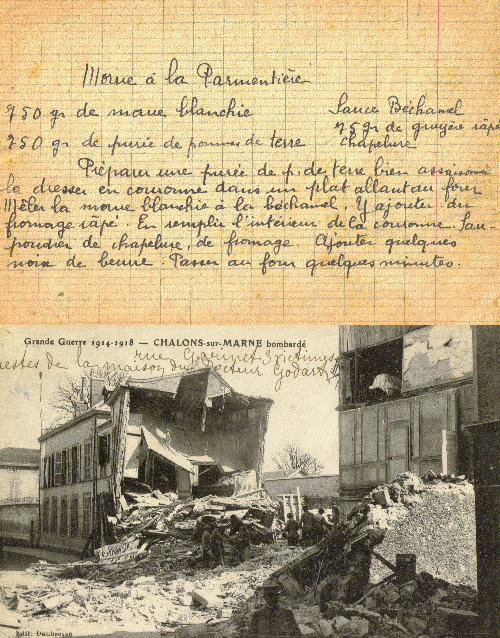 Morue à la Parmentière
750 gr de morue blanchie
750 gr. de purée de pommes de terre
Sauce Béchamel
75 gr de gruyère râpé
chapelure
Préparer une purée de p. de terre bien assaisonnée
la dresser en couronne dans un plat allant au four
Mêler la morue blanchie à la béchamel. Y ajouter du
fromage râpé. En remplir l'intérieur de la couronne. Sau-
poudrer de chapelure, de fromage. Ajouter quelques
noix de beurre. Passer au four quelques minutes.
Grande Guerre 1914-1918 — CHALONS-sur-MARNE bombardé
rue Garinet 3 victimes
restes de la maison du Docteur Godart
Edit. Daubresse